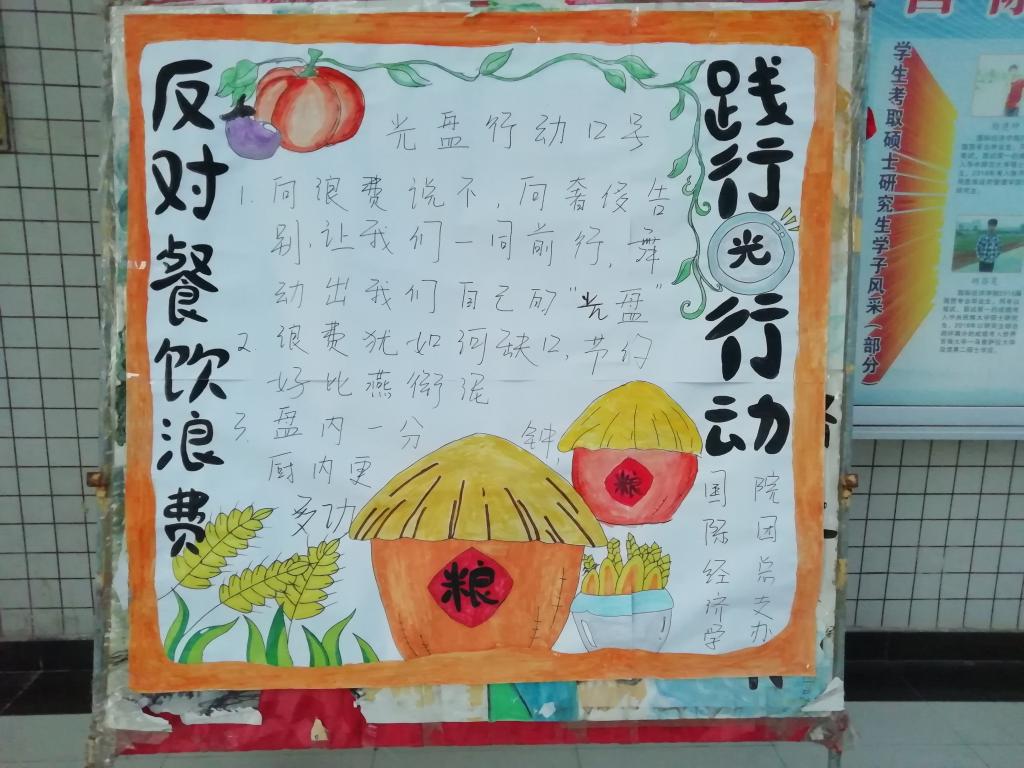 反对餐饮浪费
践行光行动
光盘行动口号
1.向浪费说不,向奢侈告
别,让我们一同前行,舞
动出我们自己的"光盘"
2 浪费犹如河决口,节约
好比燕衔泥
3.盘内一分 钟,
厨内更
多功
粮
粮
国际经济学
院团总支办
学生考取硕士研究生学子风采(部分)